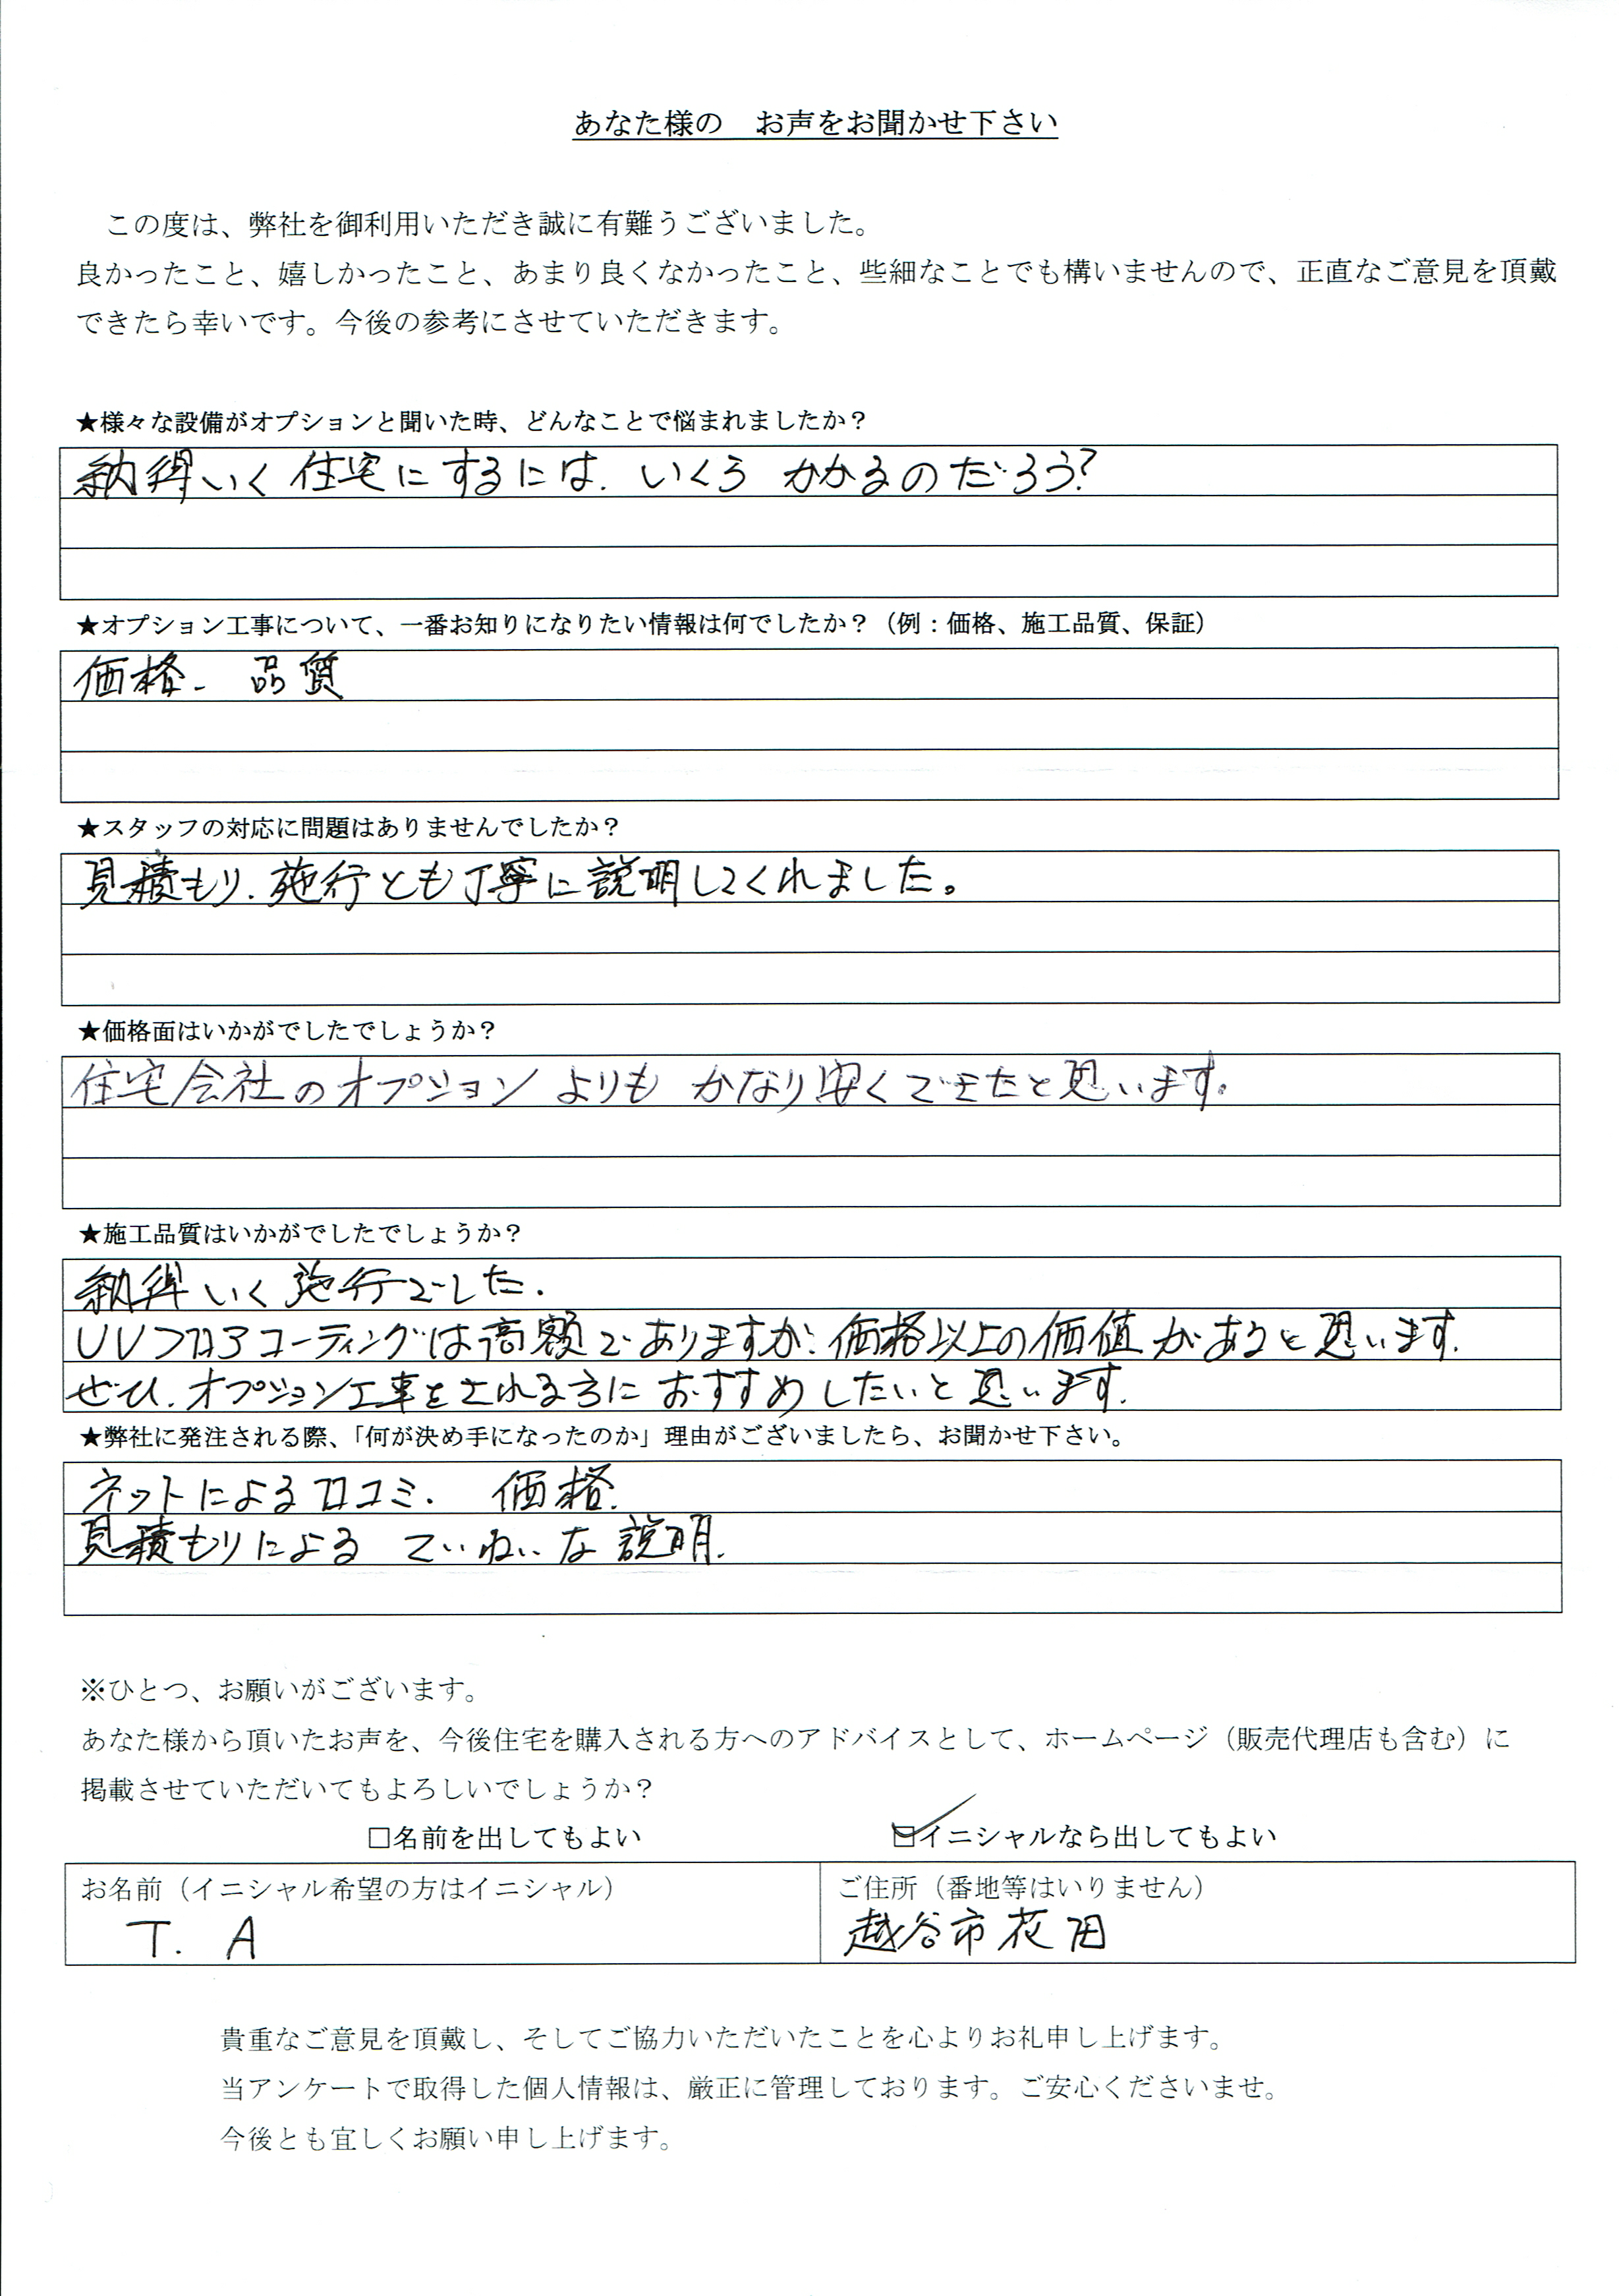 あなた様の　お声をお聞かせ下さい
この度は、弊社を御利用いただき誠に有難うございました。
良かったこと、嬉しかったこと、あまり良くなかったこと、些細なことでも構いませんので、正直なご意見を頂戴
できたら幸いです。今後の参考にさせていただきます。
★様々な設備がオプションと聞いた時、どんなことで悩まれましたか？
納得いく住宅にするには、いくら かかるのだろう？
★オプション工事について、一番お知りになりたい情報は何でしたか？（例：価格、施工品質、保証）
価格、品質
★スタッフの対応に問題はありませんでしたか？
見積もり、施行とも丁寧に説明してくれました。
★価格面はいかがでしたでしょうか？
住宅会社のオプション よりも かなり安くできたと思います。
★施工品質はいかがでしたでしょうか？
納得いく施行でした。
UVフロアコーティングは高額でありますが、価格以上の価値があると思います。
ぜひ、オプション工事をされる方におすすめしたいと思います。
★弊社に発注される際、「何が決め手になったのか」理由がございましたら、お聞かせ下さい。
ネットによる口コミ、価格、
見積もりによる ていねいな説明。
※ひとつ、お願いがございます。
あなた様から頂いたお声を、今後住宅を購入される方へのアドバイスとして、ホームページ（販売代理店も含む）に
掲載させていただいてもよろしいでしょうか？
□名前を出してもよい　☑イニシャルなら出してもよい
お名前（イニシャル希望の方はイニシャル）　ご住所（番地等はいりません）
T. A　越谷市花田
貴重なご意見を頂戴し、そしてご協力いただいたことを心よりお礼申し上げます。
当アンケートで取得した個人情報は、厳正に管理しております。ご安心くださいませ。
今後とも宜しくお願い申し上げます。